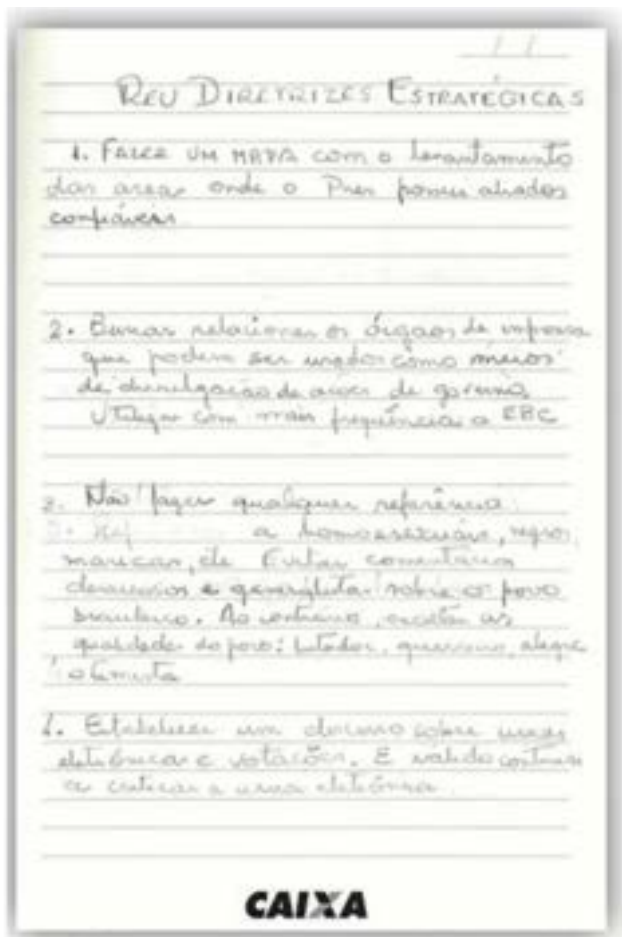 / /
REU DIRETRIZES ESTRATÉGICAS
1. FAZER UM MAPA com o levantamento
das areas onde o Pres possui aliados
confiáveis
2. Buscar relacionar os órgãos de imprensa
que podem ser usados como meios
de divulgação de acoes de governo
Utilizar com mais frequência a EBC
3. Não fazer qualquer referência
a homossexuais, negros,
maricas, etc Evitar comentários
e generalistas sobre o povo
brasileiro. Ao contrario, exaltar as
qualidades do povo: lutador, guerreiro, alegre
otimista
4. Estabelecer um discurso sobre urnas
eletrônicas e votações. É valido continuar
a criticar a urna eletrônica.
CAIXA